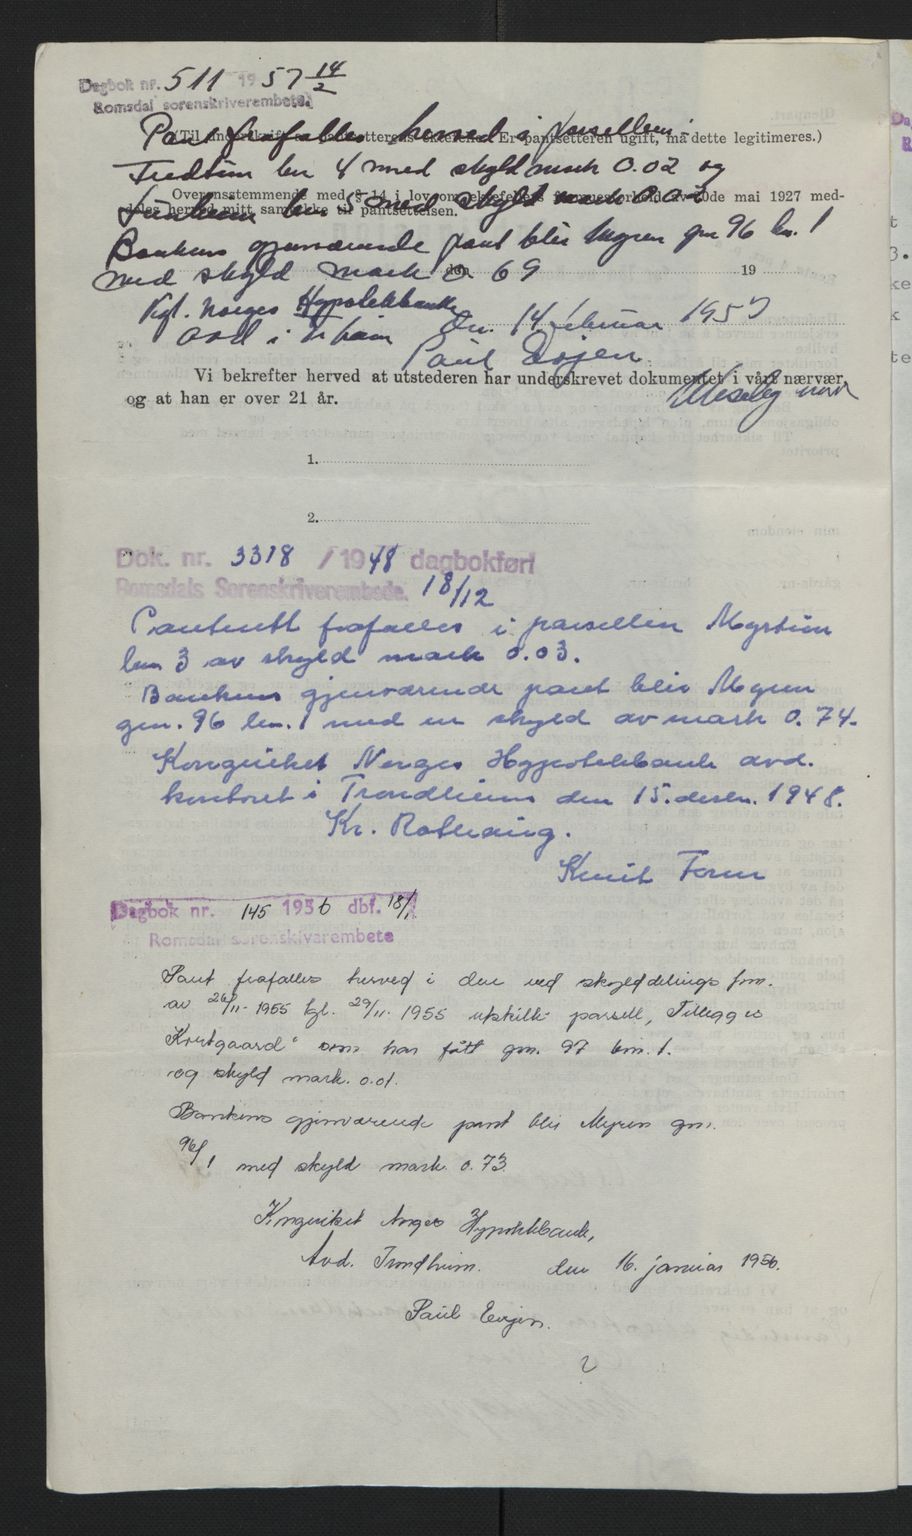 Dagbok nr. 511 1957 14/2
Romsdal sorenskriverembete
Pant frafalles herved i parsellene
(Til underskrift av pantsetterens ektefelle. Er pantsetteren ugift, må dette legitimeres.)
Fredtun bnr 4 med skyld mark 0.02 og
Overensstemmende med § 14 i lov om ektefellers formuesforhold av 20de mai 1927 med-
bnr 5 med skyld mark 0.02
deles herved mitt samtykke til pantsettelsen.
Bankens gjenværende pant blir Myren gnr 96 bn. 1
med skyld mark 0.69
den 19
Kgl. Norges Hypotekbank
avd i Tr.heim den 14 februar 1957
Paul Evjen
Vi bekrefter herved at utstederen har underskrevet dokumentet i vårt nærvær
og at han er over 21 år.
1.
2.
Dok. nr. 3318 / 1948 dagbokført
Romsdals Sorenskriverembede. 18/12
Panterett frafalles i parsellen Myrtun
bnr 3 av skyld mark 0.03.
Bankens gjenværende pant blir Myren
gnr. 96 bnr. 1 med en skyld av mark 0.74.
Kongeriket Norges Hypotekbank avd.
kontoret i Trondheim den 15. desbr. 1948.
Kr. Rotvaing.
Knut Foren
Dagbok nr. 145 1956 dbf. 18/1
Romsdal sorenskrivarembete
Pant frafalles herved i den ved skylddelings forr.
av 26/11-1955 tgl. 29/11-1955 utskilte parsell, Tillegg to
Kortgaard" som har fått gnr. 97 bnr. 1.
og skyld mark. 0.01.
Bankens gjenværende pant blir Myren gnr.
96/1 med skyld mark 0.73
Kongeriket Norges Hypotekbank,
Avd. Trondheim. den 16. januar 1956.
Paul Evjen.